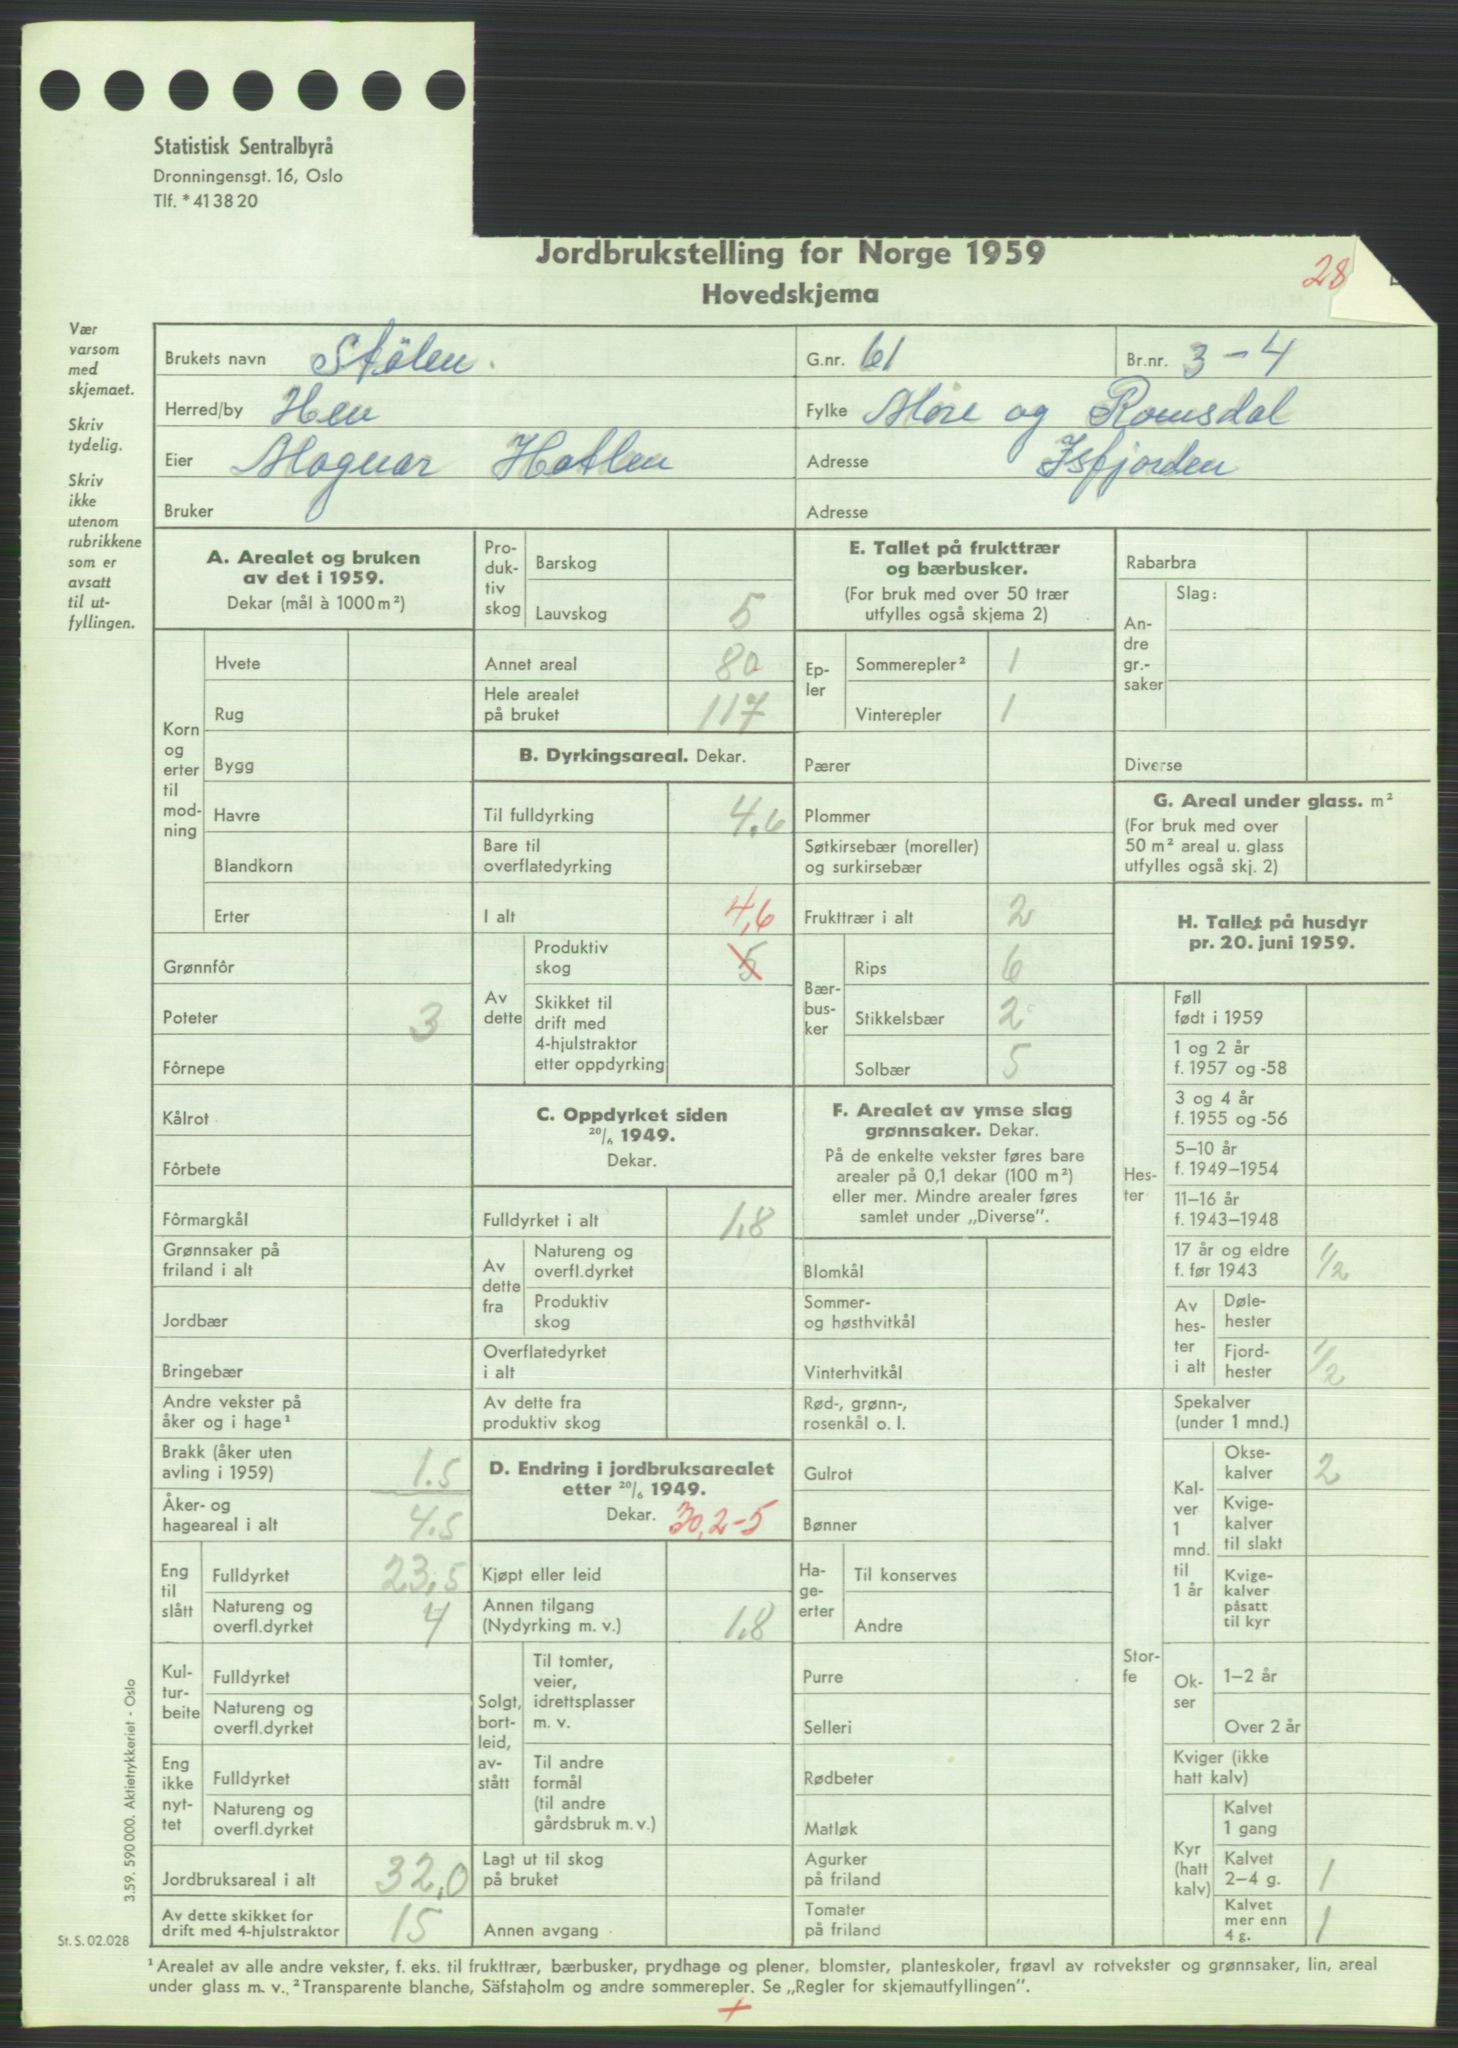 Statistisk Sentralbyrå
Dronningensgt. 16, Oslo
Tlf. * 41 38 20
Jordbrukstelling for Norge 1959
28
Hovedskjema
Vær
varsom
med
skjemaet.
Skriv
tydelig.
Skriv
ikke
utenom
rubrikkene
som er
avsatt
til ut-
fyllingen.
Brukets navn Stølen. G.nr. 61 Br.nr. 3-4
Herred/by Hen Fylke Møre og Romsdal
Eier Magnar Hatlen Adresse Isfjorden
Bruker Adresse
A. Arealet og bruken
av det i 1959.
Dekar (mål à 1000 m²)
Korn
og
erter
til
mod-
ning
Hvete
Rug
Bygg
Havre
Blandkorn
Erter
Grønnfôr
Poteter 3
Fôrnepe
Kålrot
Fôrbete
Fôrmargkål
Grønnsaker på
friland i alt
Jordbær
Bringebær
Andre vekster på
åker og i hage¹
Brakk (åker uten
avling i 1959) 1.5
Åker- og
hageareal i alt 4.5
Eng
til
slått
Fulldyrket 23,5
Natureng og
overfl.dyrket 4
Kul-
tur-
beite
Fulldyrket
Natureng og
overfl.dyrket
Eng
ikke
nyt-
tet
Fulldyrket
Natureng og
overfl.dyrket
Jordbruksareal i alt 32,0
Av dette skikket for
drift med 4-hjulstraktor 15
Pro-
duk-
tiv
skog
Barskog
Lauvskog 5
Annet areal 80
Hele arealet
på bruket 117
B. Dyrkingsareal. Dekar.
Til fulldyrking 4.6
Bare til
overflatedyrking
I alt 4,6
Av
dette
Produktiv
skog 5
Skikket til
drift med
4-hjulstraktor
etter oppdyrking
C. Oppdyrket siden
20/6 1949.
Dekar.
Fulldyrket i alt 1,8
Av
dette
fra
Natureng og
overfl.dyrket
Produktiv
skog
Overflatedyrket
i alt
Av dette fra
produktiv skog
D. Endring i jordbruksarealet
etter 20/6 1949.
Dekar. 30,2-5
Kjøpt eller leid
Annen tilgang
(Nydyrking m. v.) 1,8
Solgt,
bort-
leid,
av-
stått
Til tomter,
veier,
idrettsplasser
m. v.
Til andre
formål
(til andre
gårdsbruk m. v.)
Lagt ut til skog
på bruket
Annen avgang
E. Tallet på frukttrær
og bærbusker.
(For bruk med over 50 trær
utfylles også skjema 2)
Ep-
ler
Sommerepler² 1
Vinterepler 1
Pærer
Plommer
Søtkirsebær (moreller)
og surkirsebær
Frukttrær i alt 2
Bær-
bus-
ker
Rips 6
Stikkelsbær 2
Solbær 5
F. Arealet av ymse slag
grønnsaker. Dekar.
På de enkelte vekster føres bare
arealer på 0,1 dekar (100 m²)
eller mer. Mindre arealer føres
samlet under „Diverse”.
Blomkål
Sommer-
og høsthvitkål
Vinterhvitkål
Rød-, grønn-,
rosenkål o. l.
Gulrot
Bønner
Ha-
ge-
erter
Til konserves
Andre
Purre
Selleri
Rødbeter
Matløk
Agurker
på friland
Tomater
på friland
Rabarbra
An-
dre
gr.-
saker
Slag:
Diverse
G. Areal under glass. m²
(For bruk med over
50 m² areal u. glass
utfylles også skj. 2)
H. Tallet på husdyr
pr. 20. juni 1959.
Hes-
ter
Føll
født i 1959
1 og 2 år
f. 1957 og -58
3 og 4 år
f. 1955 og -56
5–10 år
f. 1949–1954
11–16 år
f. 1943–1948
17 år og eldre
f. før 1943 1/2
Av
hes-
ter
i alt
Døle-
hester
Fjord-
hester 1/2
Stor-
fe
Spekalver
(under 1 mnd.)
Kal-
ver
1
mnd.
til
1 år
Okse-
kalver 2
Kvige-
kalver
til slakt
Kvige-
kalver
påsatt
til kyr
Ok-
ser
1–2 år
Over 2 år
Kviger (ikke
hatt kalv)
Kyr
(hatt
kalv)
Kalvet
1 gang
Kalvet
2–4 g. 1
Kalvet
mer enn
4 g. 1
3.59. 590 000. Aktietrykkeriet - Oslo
St. S. 02.028
¹ Arealet av alle andre vekster, f. eks. til frukttrær, bærbusker, prydhage og plener, blomster, planteskoler, frøavl av rotvekster og grønnsaker, lin, areal
under glass m. v. ² Transparente blanche, Säfstaholm og andre sommerepler. Se „Regler for skjemautfyllingen”.
+